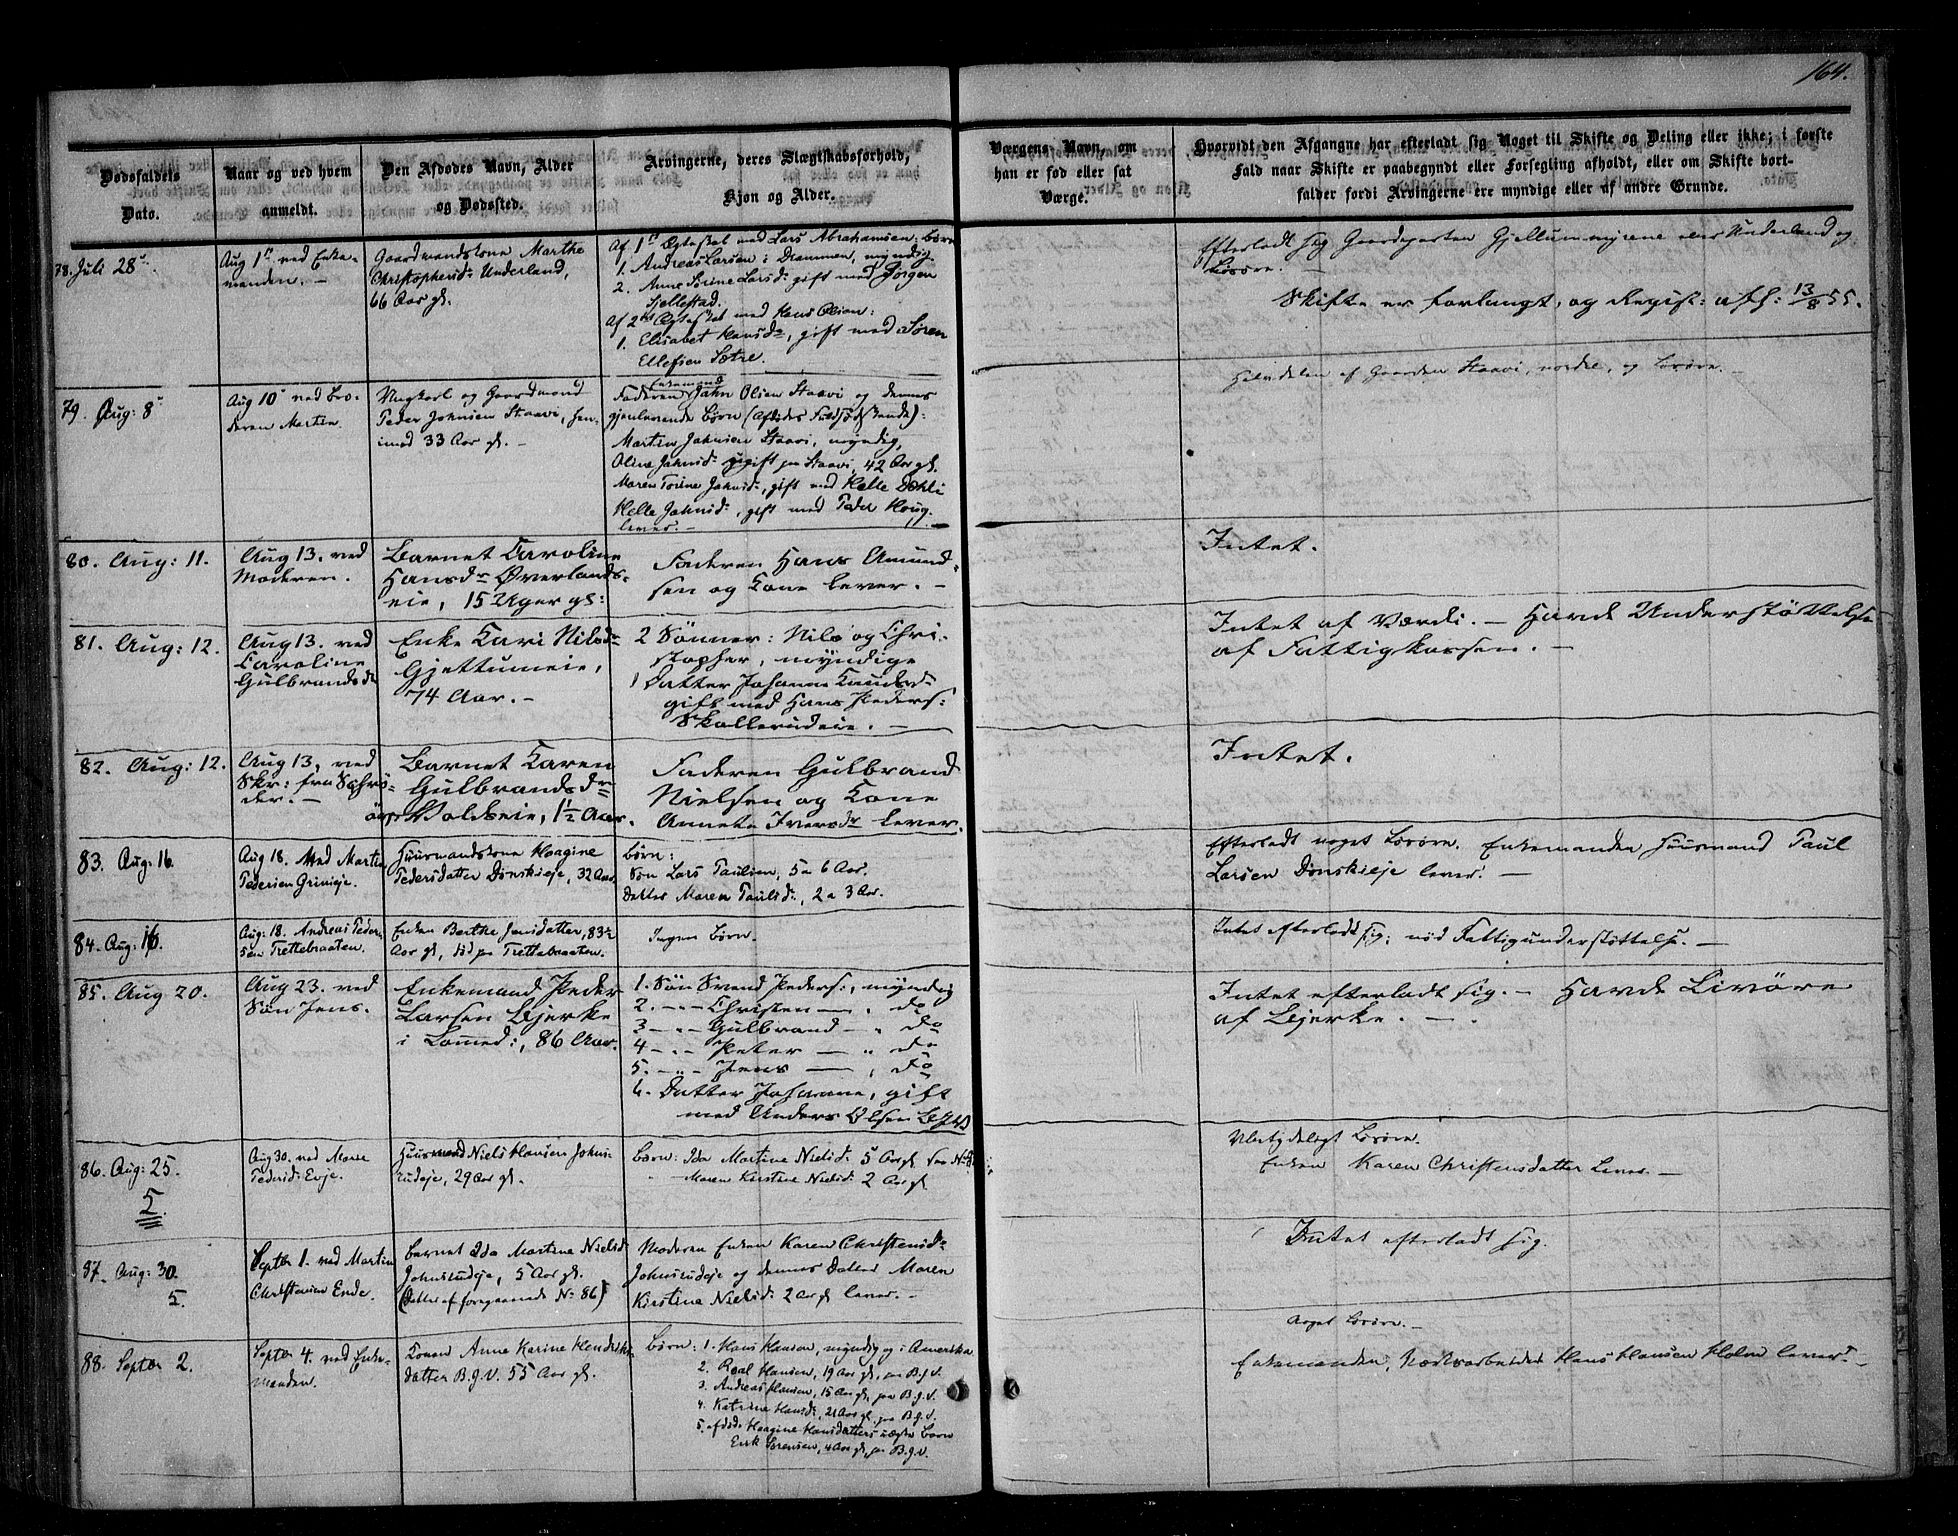 164.
Dødsfaldets
Dato.
Naar og ved hvem
anmeldt.
Den Afdødes Navn, Alder
og Dødssted.
Arvingerne, deres Slægtskabsforhold,
Kjøn og Alder.
Værgens Navn, om
han er fød eller sat
Værge.
Hvorvidt den Afgangne har efterladt sig Noget til Skifte og Deling eller ikke; i første
Fald naar Skifte er paabegyndt eller Forsegling afholdt, eller om Skifte bort-
falder fordi Arvingerne ere myndige eller af andre Grunde.
78. Juli 28
Aug 1st ved Enke-
manden. -
Gaardmandskone Marthe
Christophersd: Underland,
66 Aar gl.
Af 1st Ægteskab med Lars Abrahamsen: børn
1. Andreas Larsen i Drammen, myndig
2. Anne Sørine Larsd: gift med Jørgen
Sjellestad.
Af 2det Ægteskab med Hans Olsen:
1. Elisabet Hansdr, gift med Søren
Ellefsen Sætre.
Efterladt sig Gaardparten Gjellummyrene Underland og
Løsøre. -
Skifte er forlangt, og Regist: afh: 13/8 55.
79. Aug: 8
Aug 10 ved Bro-
deren Martin.
Ungkarl og Gaardmand
Peder Johnsen Staavi,
33 Aar gl. -
Enkemand
Faderen John Olsen Staavi og dennes
gjenlevende Børn (Afdødes Søskende):
Martin Johnsen Staavi, myndig,
Oline Johnsd: ugift paa Staavi, 42 Aar gl.
Maren Torine Johnsd:, gift med Helle Dæhli
Helle Johnsd:, gift med Peder Houg.
lever. -
Halvdelen af Gaarden Staavi, nordre, og Løsøre.
80. Aug: 11.
Aug 13. ved
Moderen.
Barnet Caroline
Hansdr Øverlands-
eie, 15 Uger gl:
Faderen Hans Amund-
sen og Kone lever. -
Intet.
81. Aug: 12.
Aug 13. ved
Caroline
Gulbrandsdr
Enke Kari Nilsdr
Gjettumeie,
74 Aar. -
2 Sønner: Nils og Chri-
stopher, myndige
1 Datter Johanne Knudsdr
gift med Hans Peders:
Skallerudeie. -
Intet af Værdi. - Havde Understøttelse
af Fattigkassen. -
82. Aug: 12.
Aug 13, ved
Skr: fra Schrö-
der. -
Barnet Karen
Gulbrandsdr
Voldseie, 1½ Aar.
Faderen Gulbrand
Nielsen og Kone
Annete Iversdr lever.
Intet.
83. Aug: 16.
Aug 18. Ved Martin
Pedersen Grinieje.
Huusmandskone Haagine
Pedersdatter Dønskieje, 32 Aar.
børn:
Søn Lars Paulsen, 5 a 6 Aar.
Datter Maren Paulsd:, 2 a 3 Aar.
Efterladt noget Løsøre. Enkemanden Huusmand Paul
Larsen Dønskieje lever. -
84. Aug: 16.
Aug: 18. Andreas Peder-
sen Trettebraaten.
Enken Berthe Jensdatter, 83½
Aar gl, død paa Trettebraaten.
Ingen børn.
Intet efterladt sig; nød Fattigunderstøttelse. -
85. Aug 20.
Aug 23. ved
Søn Jens.
Enkemand Peder
Larsen Bjerke
i Lommed:, 86 Aar.
1. Søn Svend Peders:, myndig
2. - - Christen - " do
3 - - Gulbrand - " do
4 - - Peter - " do
5. - - Jens - , do
6. Datter Johanne, gift
med Anders Olsen
Intet efterladt sig. - Havde Livøre
af Bjerke. - .
86. Aug: 25.
5.
Aug 30. ved Marie
Pedersd: Evje.
Huusmand Niels Hansen Johns-
rudeje, 29 Aar gl.
børn: Ida Martine Nielsd: 5 Aar gl
" Maren Kirstine Nielsd: 2 Aar gl
Ubetydeligt Løsøre.
Enken Karen Christensdatter lever. -
87. Aug: 30.
5.
Septbr 1. ved Martin
Christensen Ende.
Barnet Ida Martine Nielsd:
Johnsrudeje, 5 Aar gl.
(Datter af foregaaende No 86)
Moderen Enken Karen Christensd:
Johnsrudeje og dennes Datter Maren
Kirstine Nielsd: 2 Aar gl lever. -
Intet efterladt sig.
88. Septbr 2.
Septbr 4. ved Enke-
manden.
Konen Anne Karine Hendriks-
datter B.g.V. 55 Aar gl.
børn: 1. Hans Hansen, myndig og i Amerika
2. Roal Hansen, 19 Aar gl, paa B.g.V.
3. Andreas Hansen, 15 Aar gl, paa B.g.V.
4. Katrine Hansd:, 21 Aar gl. paa B.g.V.
5. afdøde Haagine Hansdatters uægte børn
Erik Sørensen, 4 Aar gl, paa B.g.V.
Noget Løsøre. -
Enkemanden, Værksarbeider Hans Hansen Holm lever. -